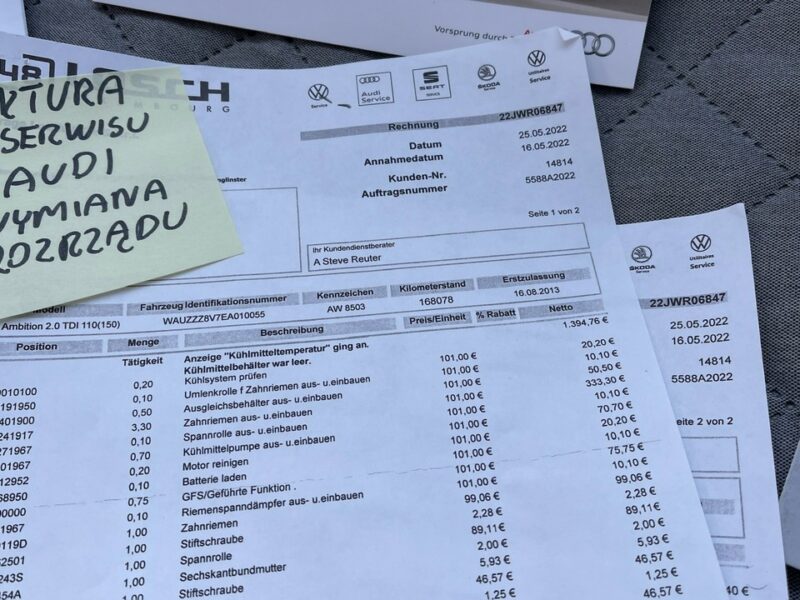 Vorsprung durch
LOSCH
KTURA
SERWISU
AUDI
WYMIANA
ROZRZĄDU
Service
Audi
Service
SEAT
ŠKODA
Service
Utilitaires
Service
Rechnung 22JWR06847
Datum 25.05.2022
Annahmedatum 16.05.2022
Kunden-Nr. 14814
Auftragsnummer 5588A2022
Seite 1 von 2
Ihr Kundendienstberater
A Steve Reuter
Modell Fahrzeug Identifikationsnummer Kennzeichen Kilometerstand Erstzulassung
Ambition 2.0 TDI 110(150) WAUZZZ8V7EA010055 AW 8503 168078 16.08.2013
Position Menge Beschreibung Preis/Einheit % Rabatt Netto
Tätigkeit Anzeige "Kühlmitteltemperatur" ging an. 1.394,76 €
Kühlmittelbehälter war leer.
0010100 0,20 Kühlsystem prüfen 101,00 € 20,20 €
191950 0,10 Umlenkrolle f Zahnriemen aus- u.einbauen 101,00 € 10,10 €
401900 0,50 Ausgleichsbehälter aus- u.einbauen 101,00 € 50,50 €
241917 3,30 Zahnriemen aus- u.einbauen 101,00 € 333,30 €
271967 0,10 Spannrolle aus- u.einbauen 101,00 € 10,10 €
01967 0,70 Kühlmittelpumpe aus- u.einbauen 101,00 € 70,70 €
12952 0,20 Motor reinigen 101,00 € 20,20 €
68950 0,10 Batterie laden 101,00 € 10,10 €
00000 0,75 GFS/Geführte Funktion . 101,00 € 75,75 €
1967 0,10 Riemenspanndämpfer aus- u.einbauen 101,00 € 10,10 €
0119D 1,00 Zahnriemen 99,06 € 99,06 €
62501 1,00 Stiftschraube 2,28 € 2,28 €
243S 1,00 Spannrolle 89,11 € 89,11 €
454A 1,00 Sechskantbundmutter 2,00 € 2,00 €
1,00 Stiftschraube 5,93 € 5,93 €
46,57 € 46,57 €
1,25 € 1,25 €
ŠKODA
Service
Utilitaires
Service
22JWR06847
25.05.2022
16.05.2022
14814
5588A2022
Seite 2 von 2